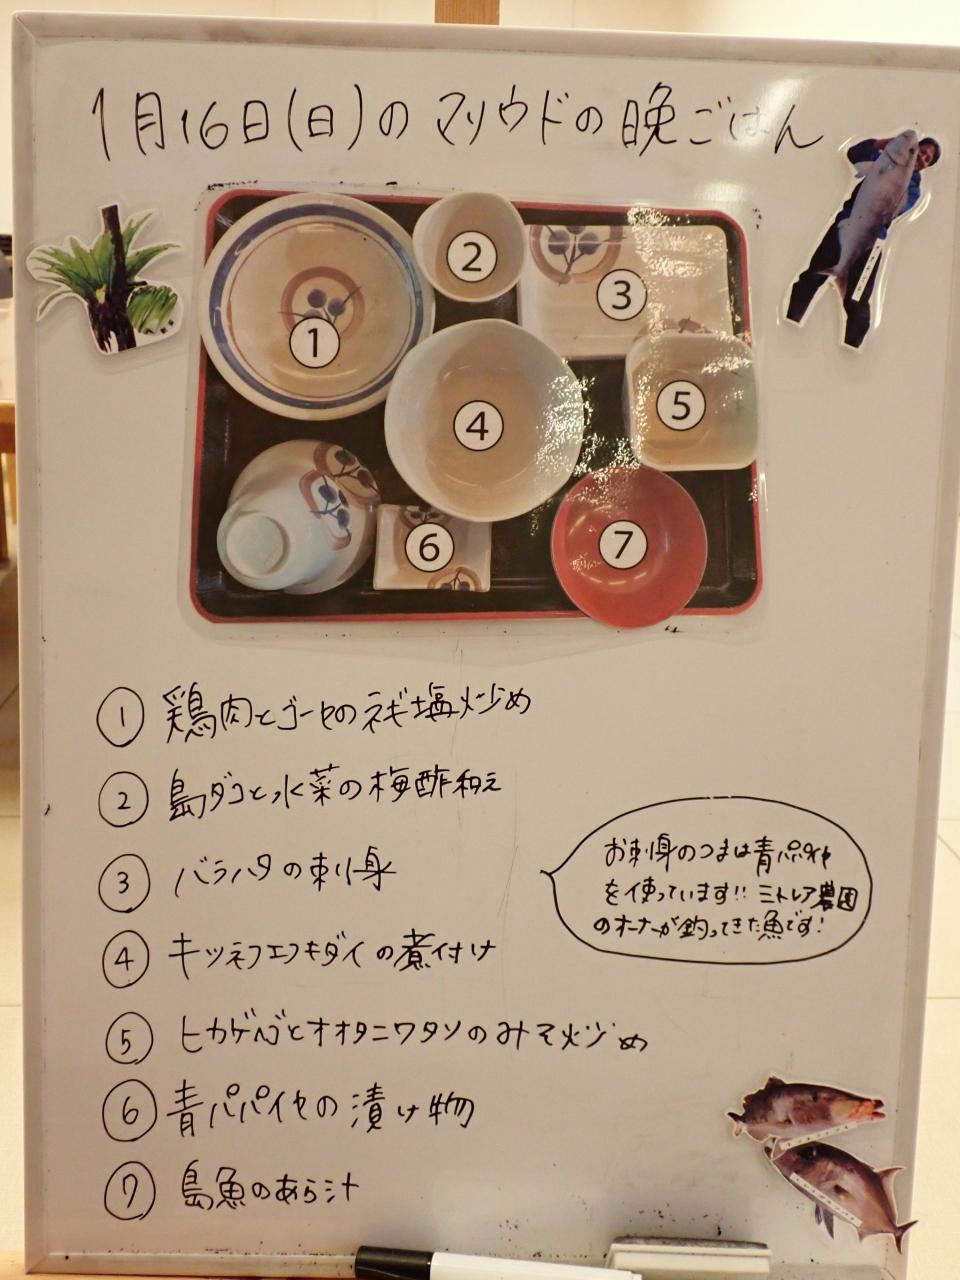 1月16日(日)のマリウドの晩ごはん
①
②
③
④
⑤
⑥
⑦
① 鶏肉とゴーヤのネギ塩炒め
② 島ダコと水菜の梅酢和え
③ バラハタの刺身
お刺身のつまは青パパイヤ
を使っています!! ミトレア農園
のオーナーが釣ってきた魚です!
④ キツネフエフキダイの煮付け
⑤ ヒカゲヘゴとオオタニワタリのみそ炒め
⑥ 青パパイヤの漬け物
⑦ 島魚のあら汁